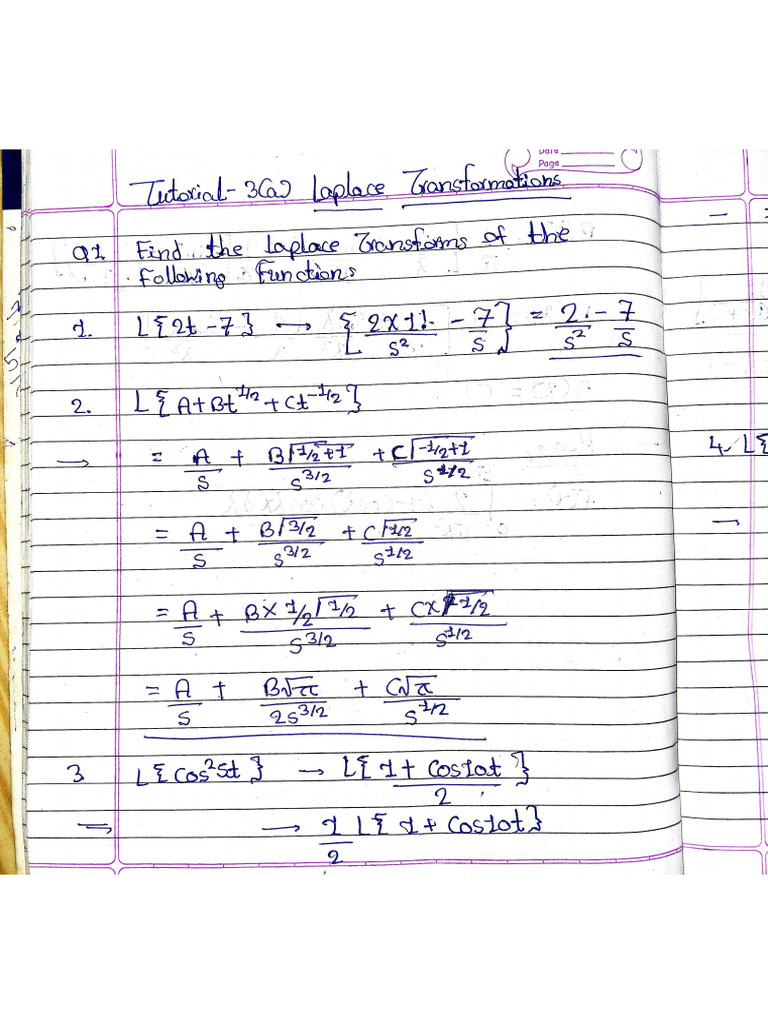 Date
Page
Tutorial - 3(a) Laplace Transformations
Q1. Find the Laplace Transforms of the
following Functions
1. L{2t - 7} → {2×1!/s² - 7/s} = 2/s² - 7/s
2. L{A+Bt^1/2 + Ct^-1/2}
→ = A/s + B√1/2+1/s^3/2 + C√-1/2+1/s^1/2
= A/s + B√3/2/s^3/2 + C√1/2/s^1/2
= A/s + B×1/2√1/2/s^3/2 + C×√1/2/s^1/2
= A/s + B√π/2s^3/2 + C√π/s^1/2
3. L{cos²5t} → L{1 + cos10t/2}
→ 1/2 L{1 + cos10t}
4. L{
→